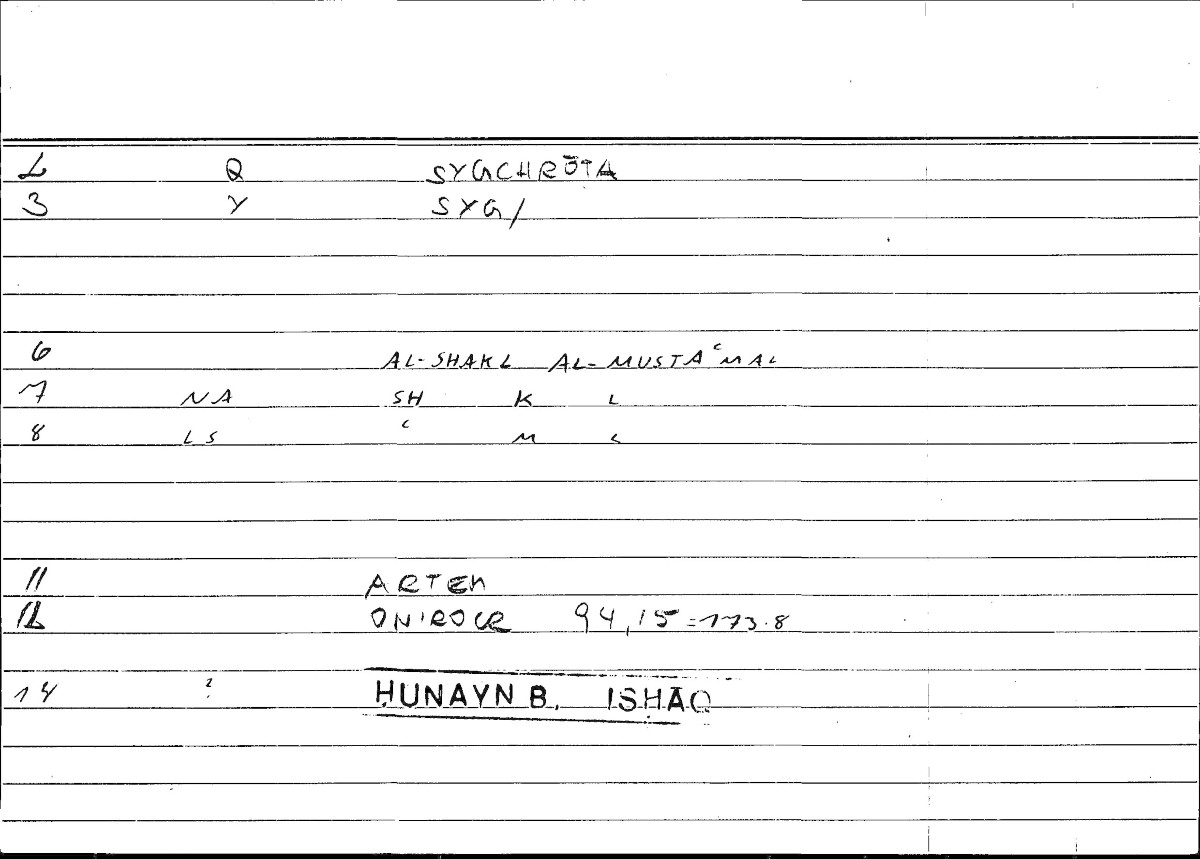 2 Q SYGCHRŌTA
3 Y SYG/
6 AL-SHAKL AL-MUSTAʿMAL
7 NA SH K L
8 LS ʿ M L
11 ARTEM
12 ONIROCR 94,15=173.8
14 ? ḤUNAYN B. ISḤĀQ